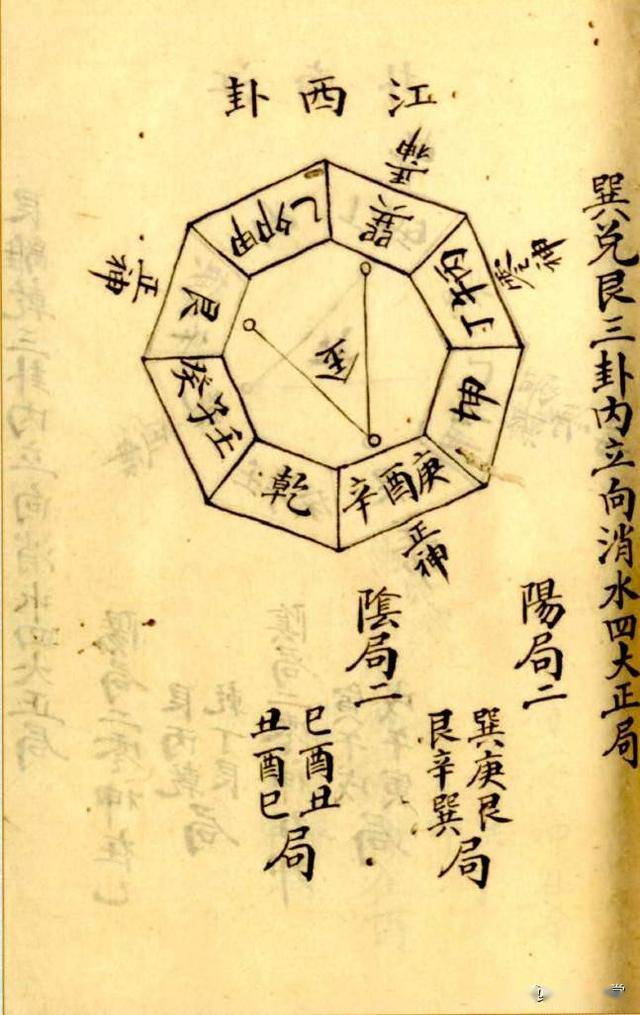 江西卦
巽兌艮三卦内立向消水四大正局
正神
巽
零神
丙午丁
坤
正神
庚酉辛
乾
壬子癸
正神
艮
甲卯乙
金
陽局二
巽庚艮
艮辛巽
局
陰局二
巳酉丑
丑酉巳
局